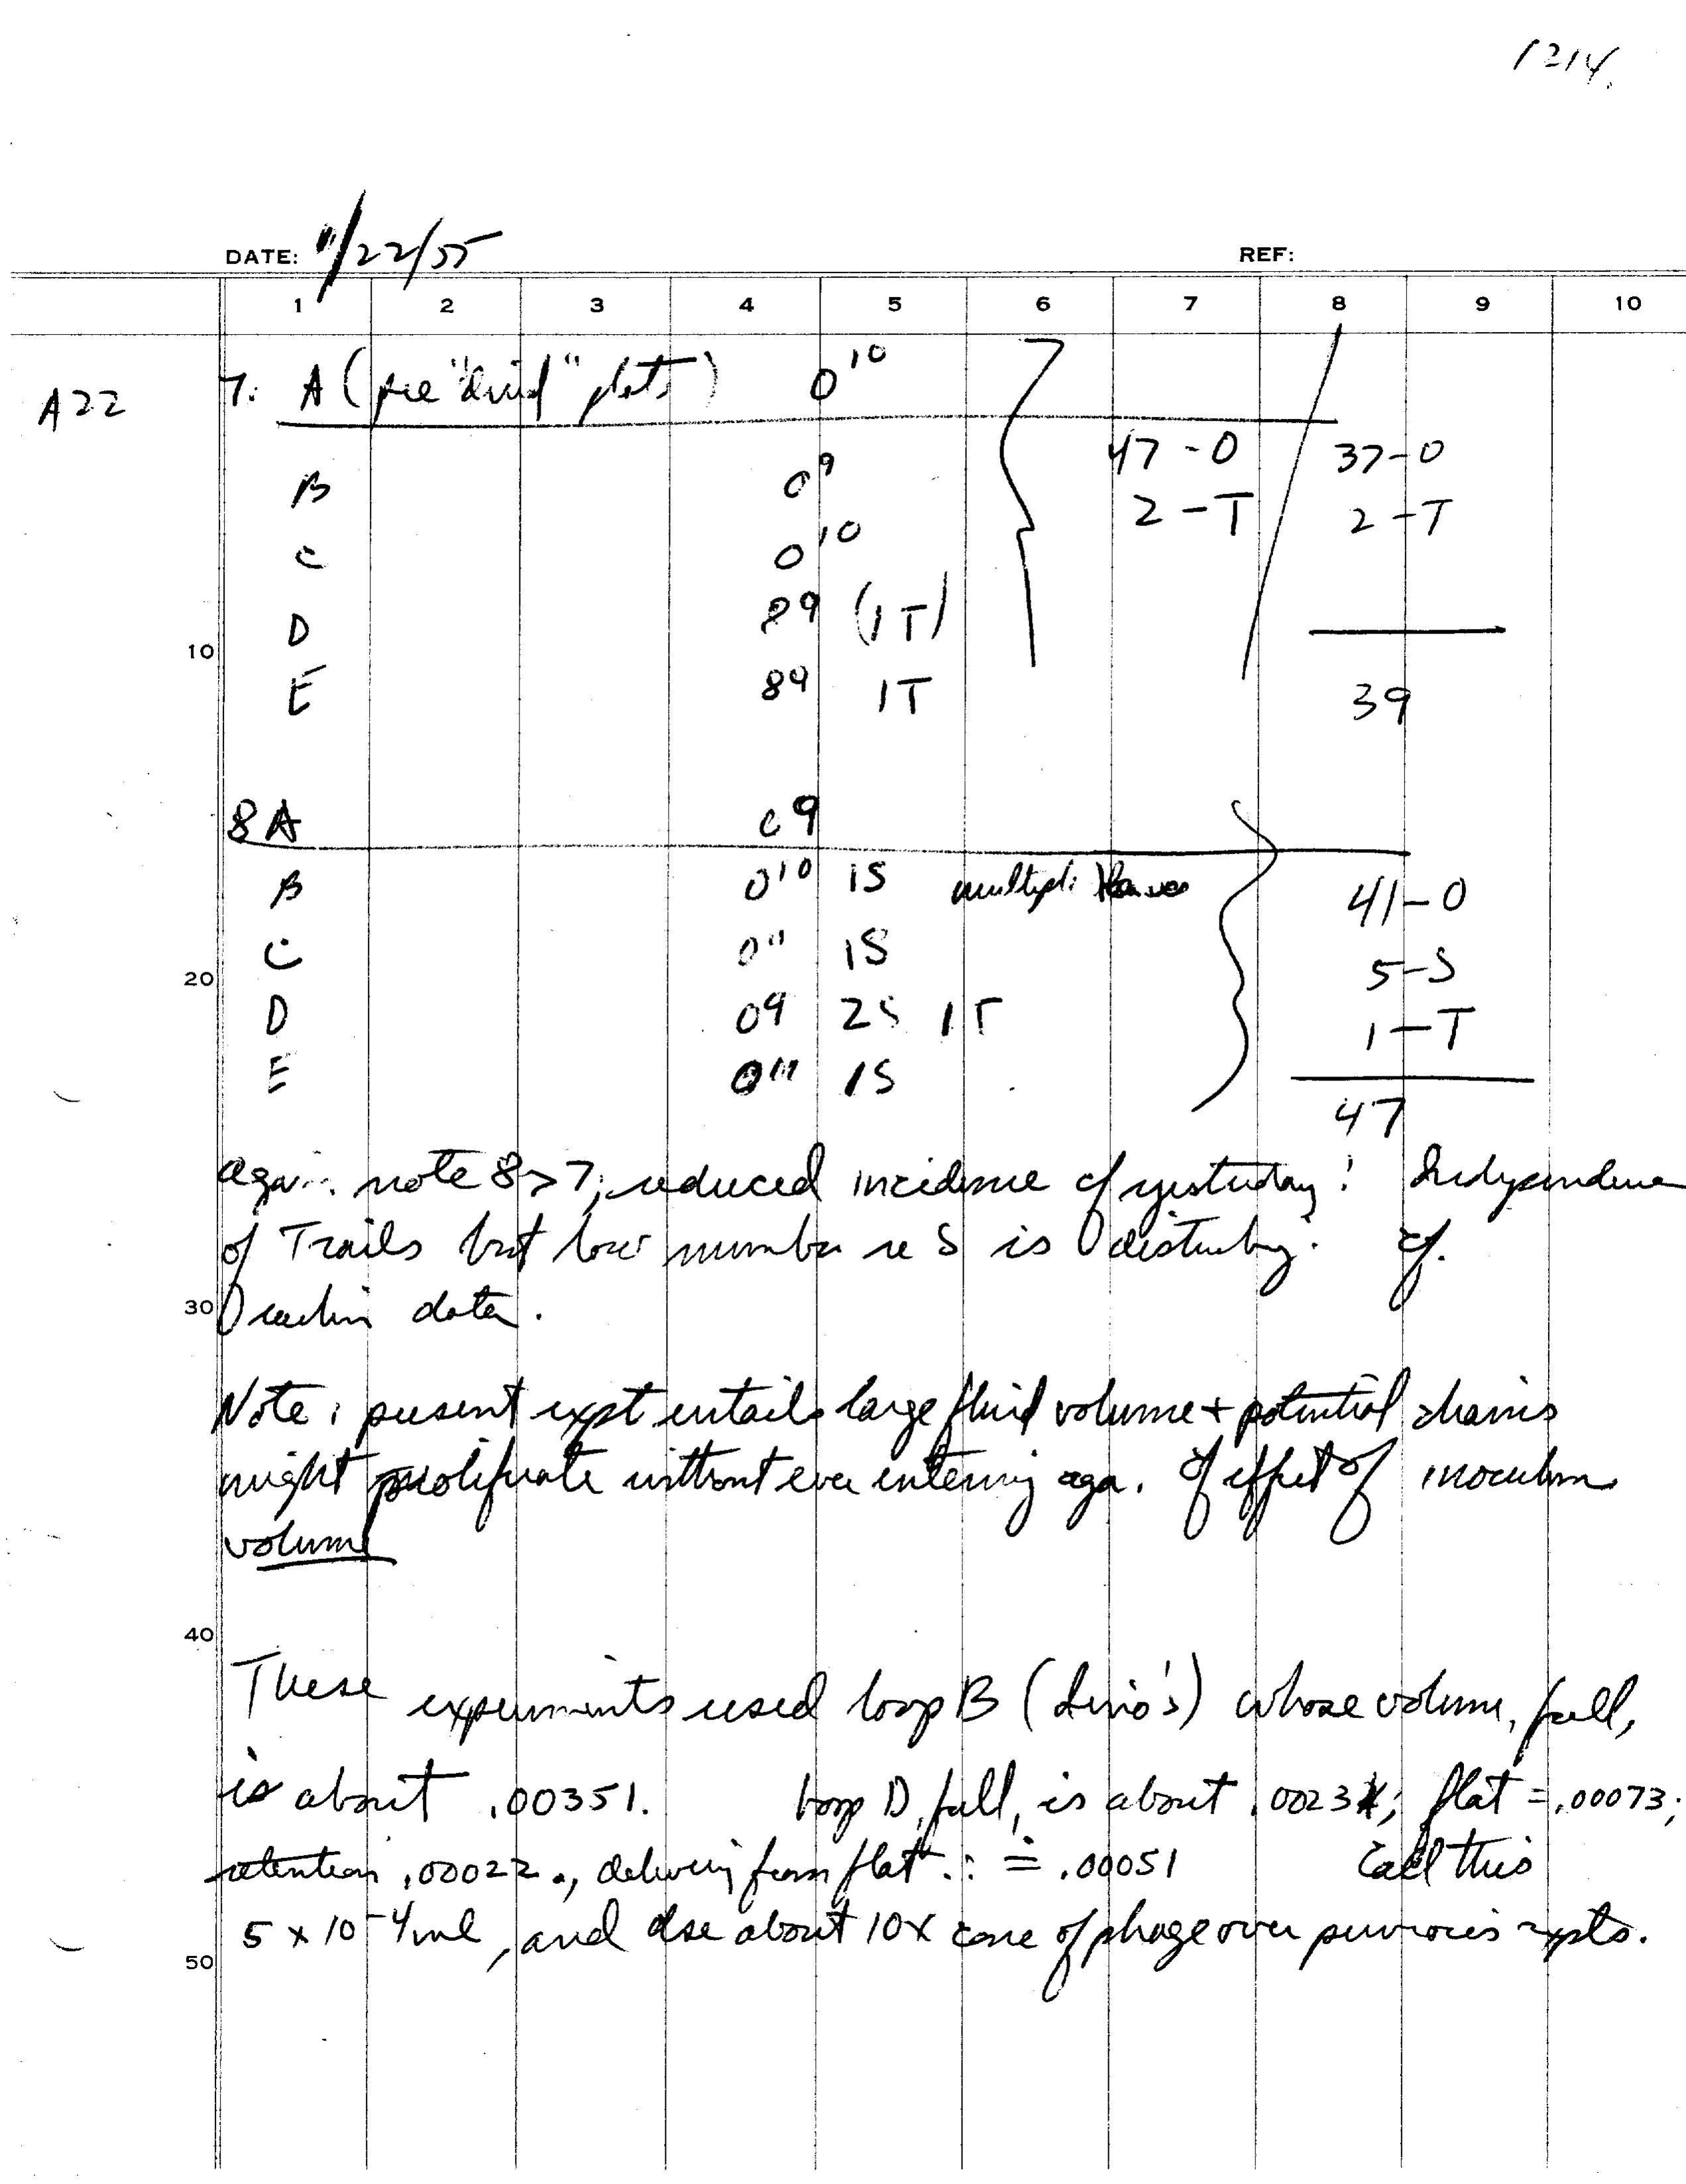 1214.
DATE: 11/22/55 REF:
1 2 3 4 5 6 7 8 9 10
A22 7: A (pre " " plate) 0¹⁰
B 0⁹ 47-0 37-0
C 0¹⁰ 2-T 2-T
10 D 89 (1T)
E 89 1T 39
8A 0 9
B 0¹⁰ 1S 41-0
20 C 0¹¹ 1S 5-S
D 09 2S 1T 1-T
E 0¹¹ 1S
47
Again note 8>7; reduced incidence cf yesterday! Independence
of Trails but low number re S is disturbing. cf.
30 data.
Note: present expt entails large fluid volume + potential chains
might proliferate without ever entering agar. Cf effect of inoculum
volume
40
These experiments used loop B ( ) whose volume, full,
is about .00351. Loop D, full, is about .0023; flat = .00073;
retention .00022., delivery from flat ∴ ≐ .00051 Call this
5 x 10⁻⁴ ml, and use about 10X conc of phage over previous expts.
50